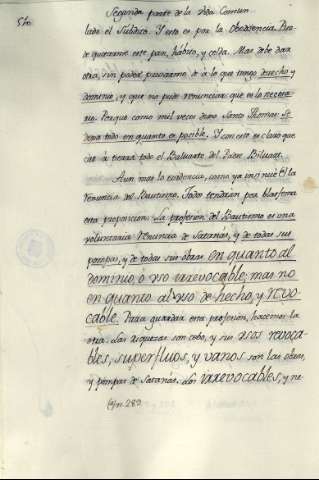 Segunda parte de la Vida Comun
lado el Subdito. Y esto es por la Obediencia. Pue-
de quitarme este pan, habito, y celda. Mas debe dar
otra, sin poder privarme de à lo que tengo derecho y
dominio, y que no pude renunciar que es lo necesa-
rio. Porque como mil veces dixo Santo Thomas: Se
dexa todo en quanto es posible. Y con esto es claro que
cae à tierra todo el Baluarte del Padre Biluart.
Aun mas lo evidencia, como ya insinuè (*) la
renuncia del Bautismo. Todos tendran por blasfema
esta proposicion. La profesion del Bautismo es una
voluntaria renuncia de Satanàs, y de todas sus
pompas, y de todas sus obras en quanto al
dominio, ò uso irrevocable; mas no
en quanto al uso de hecho, y revo
cable. Para guardar esta profesion, hacemos la
otra. Las riquezas son cebo, y sus usos revoca-
bles, superfluos, y vanos son las obras,
y pompas de Satanàs. Los irrevocables, y ne-
(*) n. 289